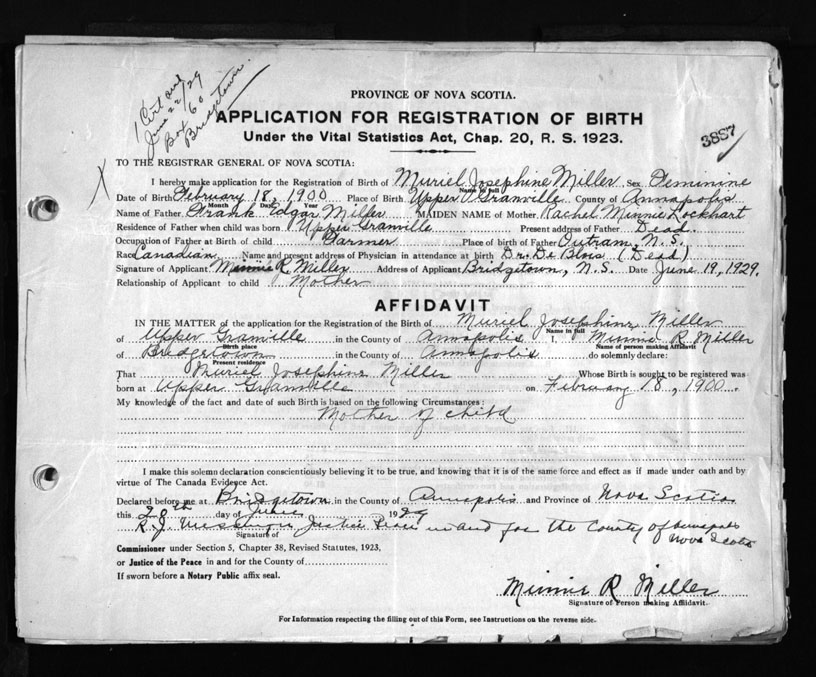 1 Cert and
June 22/29
Box 60
Bridgetown.
PROVINCE OF NOVA SCOTIA.
APPLICATION FOR REGISTRATION OF BIRTH
Under the Vital Statistics Act, Chap. 20, R. S. 1923.
3887
TO THE REGISTRAR GENERAL OF NOVA SCOTIA:
X
I hereby make application for the Registration of Birth of Muriel Josephine Miller Sex Feminine
Name in full
Date of Birth February 18, 1900 Place of Birth Upper Granville County of Annapolis
Month Day Year
Name of Father Frank Edgar Miller MAIDEN NAME of Mother Rachel Minnie Lockhart
Residence of Father when child was born Upper Granville Present address of Father Dead.
Occupation of Father at Birth of child Farmer Place of birth of Father Outram, N.S.
Race Canadian Name and present address of Physician in attendance at birth Dr. De Blois (Dead)
Signature of Applicant Minnie R. Miller Address of Applicant Bridgetown, N.S. Date June 19, 1929.
Relationship of Applicant to child Mother
AFFIDAVIT
IN THE MATTER of the application for the Registration of the Birth of Muriel Josephine Miller
Name in full
of Upper Granville in the County of Annapolis I, Minnie R Miller
Birth place Name of person making Affidavit
of Bridgetown in the County of Annapolis do solemnly declare:
Present residence
That Muriel Josephine Miller Whose Birth is sought to be registered was
born at Upper Granville on February 18, 1900.
My knowledge of the fact and date of such Birth is based on the following Circumstances:
Mother of child
I make this solemn declaration conscientiously believing it to be true, and knowing that it is of the same force and effect as if made under oath and by
virtue of The Canada Evidence Act.
Declared before me at Bridgetown in the County of Annapolis and Province of Nova Scotia
this 20th day of June 1929
R. J. Messinger Justice Peace in and for the County of Annapolis
Nova Scotia
Signature of
Commissioner under Section 5, Chapter 38, Revised Statutes, 1923,
or Justice of the Peace in and for the County of
If sworn before a Notary Public affix seal.
Minnie R Miller
Signature of Person making Affidavit.
For Information respecting the filling out of this Form, see Instructions on the reverse side.